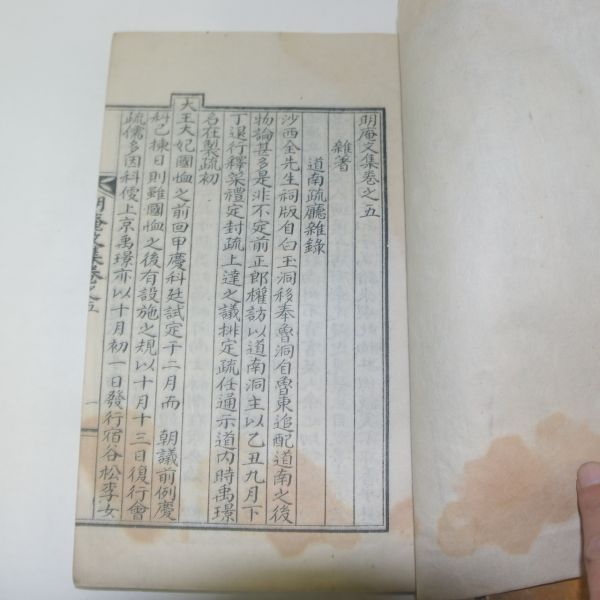 明庵文集卷之五
雜著
道南疏廳雜錄
沙西全先生祠版自白玉洞移奉魯洞自魯東追配道南之後
物論甚多是非不定前正郎權訪以道南洞主以乙丑九月下
丁退行釋菜禮定封疏上達之議排定疏任通示道內時禹璟
名在製疏初
大王大妃國恤之前回甲慶科廷試定于二月而 朝議前例慶
科已揀日則雖國恤之後有設施之規以十月十三日復行會
疏儒多因科便上京禹璟亦以十月初一日發行宿谷松李女
明庵文集卷之五
一